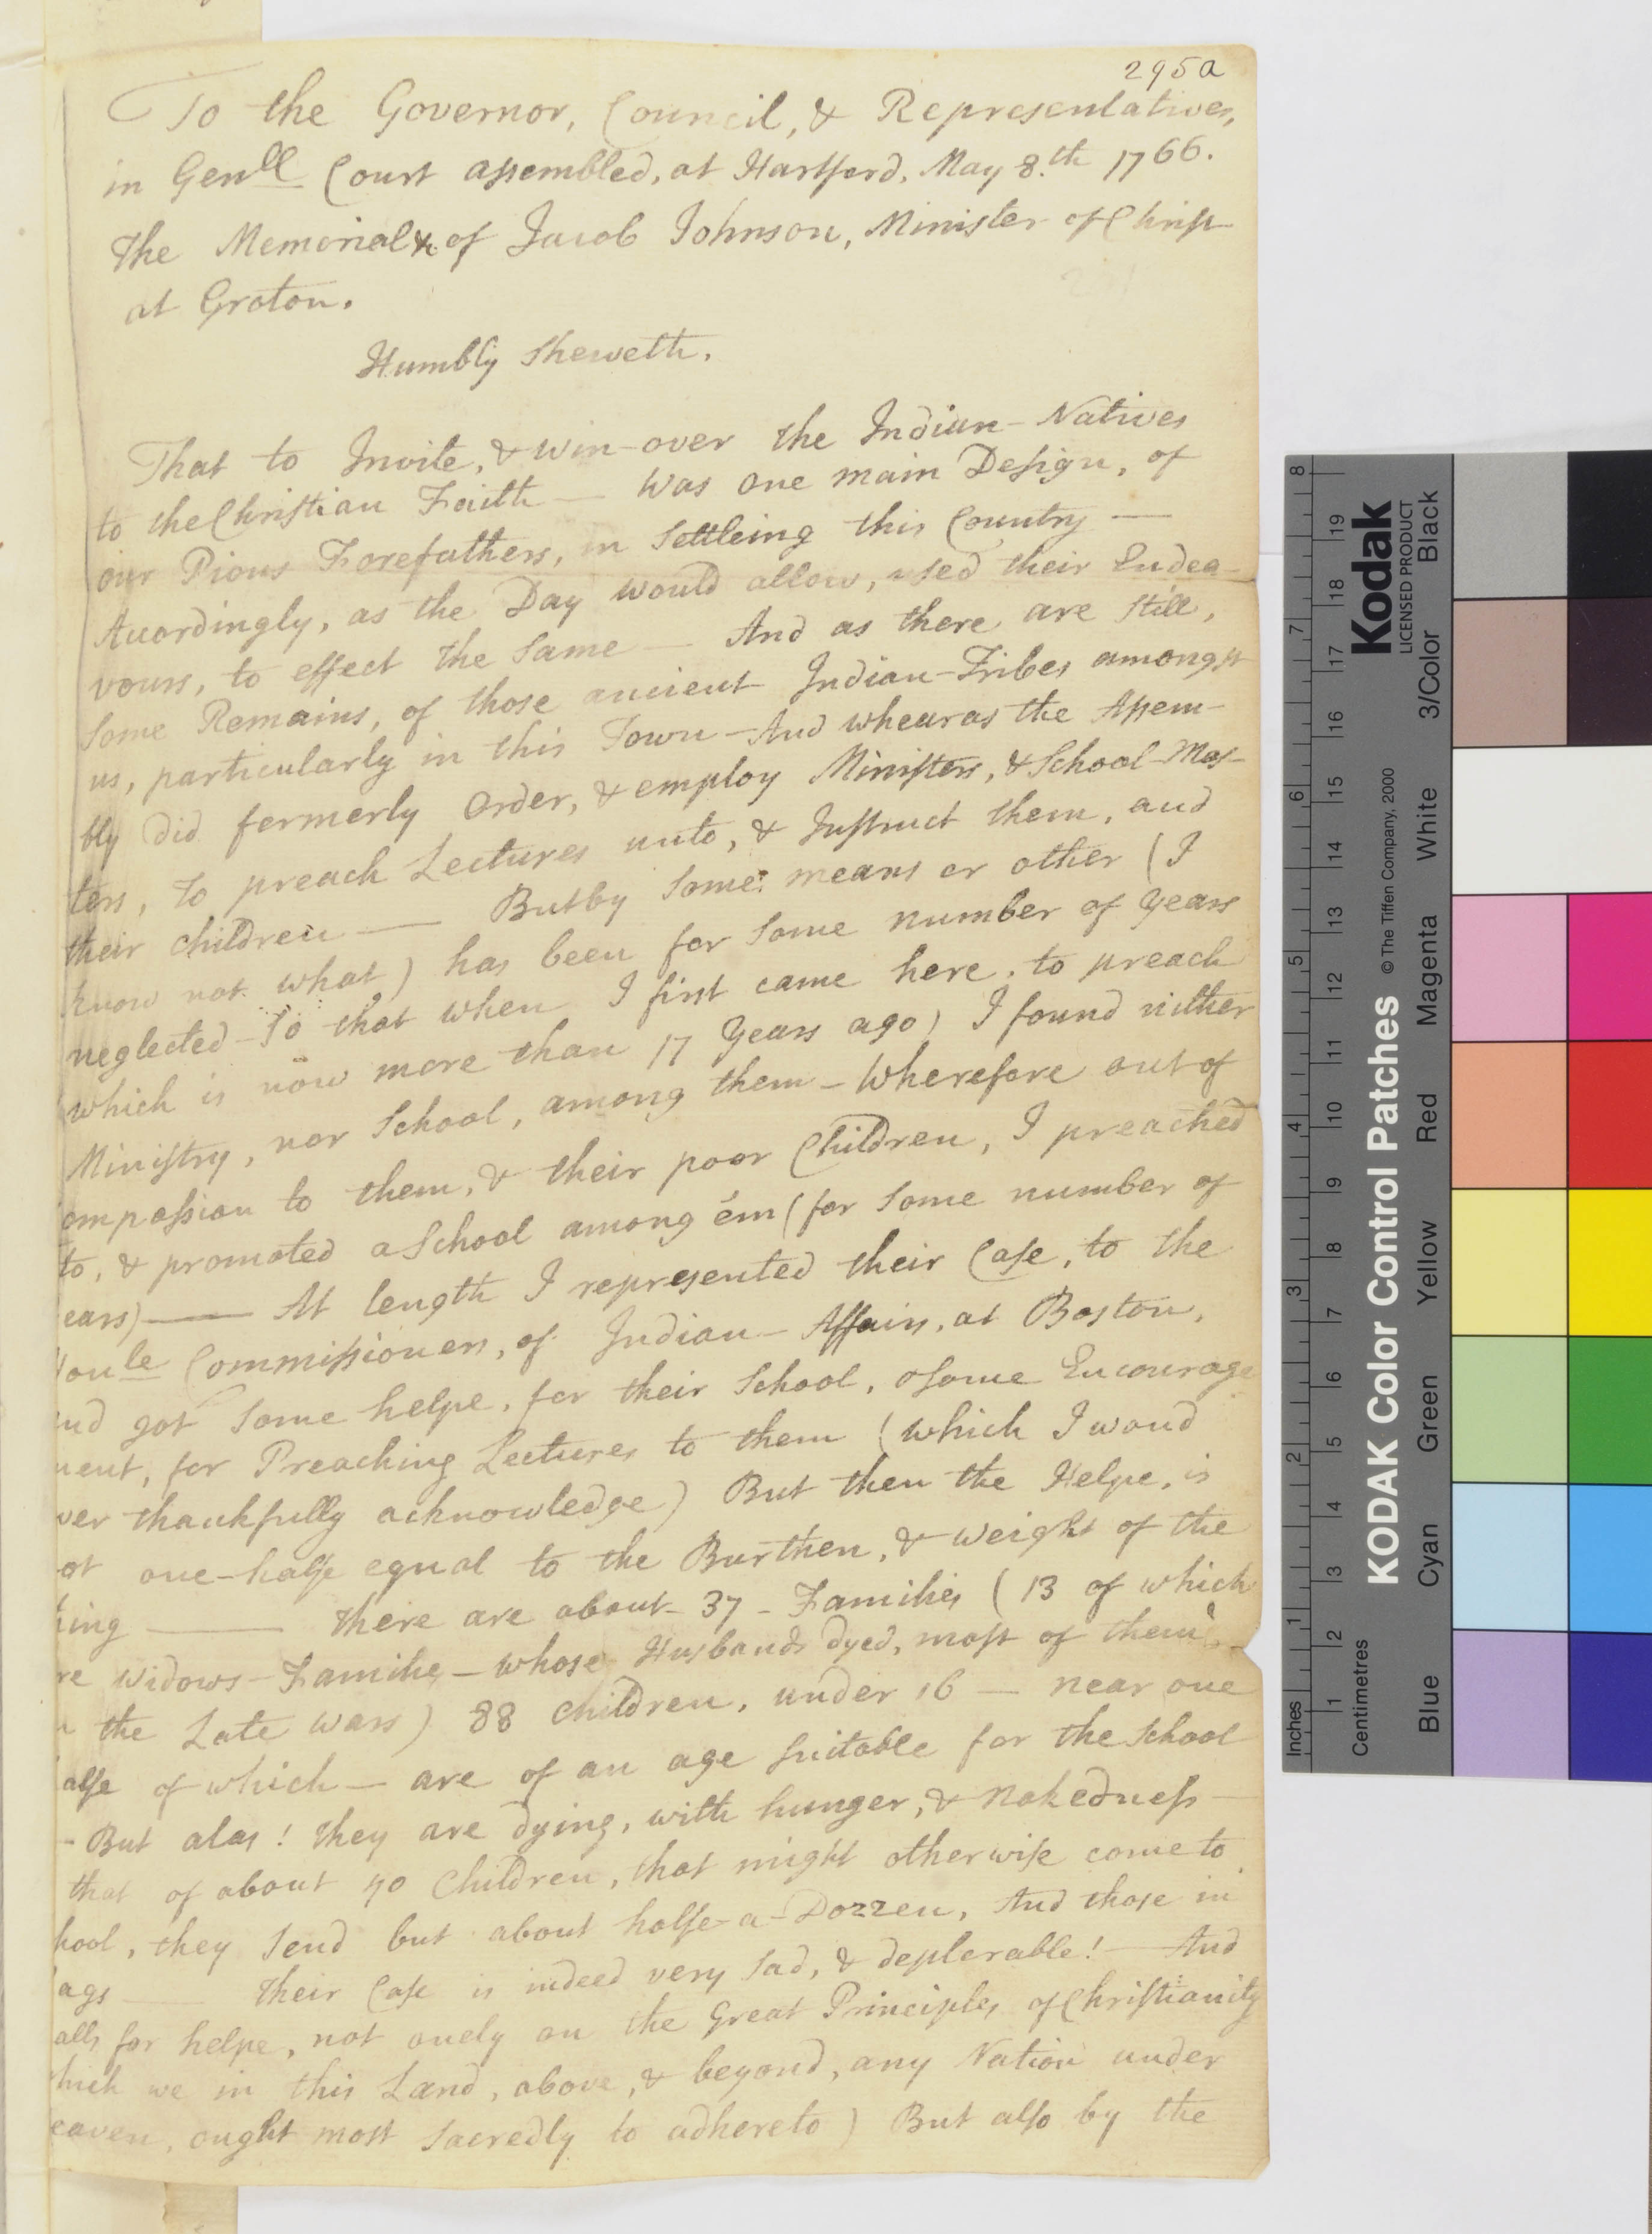 295a
To the Governor, Council, & Representatives,
in Genll Court assembled, at Hartford, May 8.th 1766.
The Memorial &c of Jacob Johnson, Minister of Christ
at Groton.
Humbly Sheweth.
That to Invite, & win-over the Indian-Natives
to the Christian Faith — Was one main Design, of
our Pious Forefathers, in Settleing this Country —
Acordingly, as the Day would allow, used their Endea-
vours, to effect the Same — And as there are Still,
Some Remains, of those ancient Indian-Tribes amongst
us, particularly in this Town — And whearas the Assem-
bly did formerly Order, & employ Ministers, & School-Mas-
ters, to preach Lectures unto, & Instruct them, and
their children — But by Some means or other (I
know not what) has been for Some number of Years
neglected — So that when I first came here, to preach
which is now more than 17 Years ago) I found nither
Ministry, nor School, among them — Wherefore out of
ompassion to them, & their poor Children, I preached
to, & promoted a School among 'em (for Some number of
ears) — At length I represented their Case, to the
onle Commissioners, of Indian-Affairs, at Boston,
nd got Some helpe, for their School, & Some Encourage
ment, for Preaching Lectures to them (which I woud
ver thankfully acknowledge) But then the Helpe, is
ot one-halfe equal to the Burthen, & weight of the
hing — There are about - 37 - Families (13 of which
re Widows-Families — whose Husbands dyed, most of them
n the Late Wars) 88 Children, under 16 — near one
alfe of which — are of an age Suitable for the School
- But alas! they are dying, with hunger, & Nakedness —
that of about 40 Children, that might otherwise come to
hool, they Send but about halfe-a-Dozzen, And those in
ags — Their Case is indeed very Sad, & deplorable! — And
alls for helpe, not onely on the Great Principles of Christianity
hich we in this Land, above, & beyond, any Nation under
eaven, ought most Sacredly to adhere to) But also by the
Kodak
LICENSED PRODUCT
KODAK Color Control Patches © The Tiffen Company, 2000
Blue Cyan Green Yellow Red Magenta White 3/Color Black
Inches 1 2 3 4 5 6 7 8
Centimetres 1 2 3 4 5 6 7 8 9 10 11 12 13 14 15 16 17 18 19